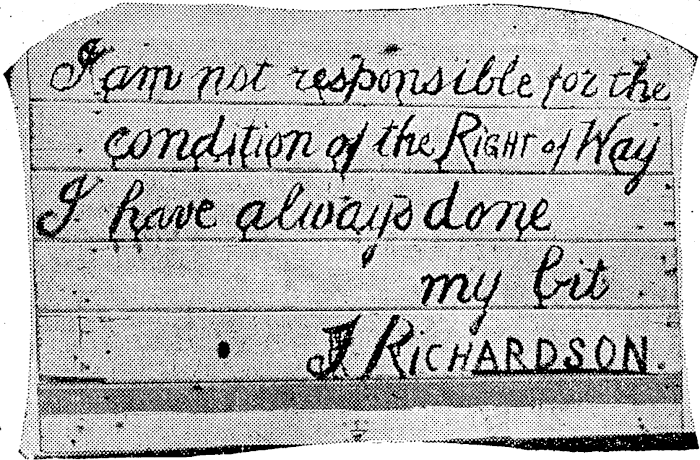 I am not responsible for the
condition of the RIGHT of Way
I have always done
my bit
J RICHARDSON.